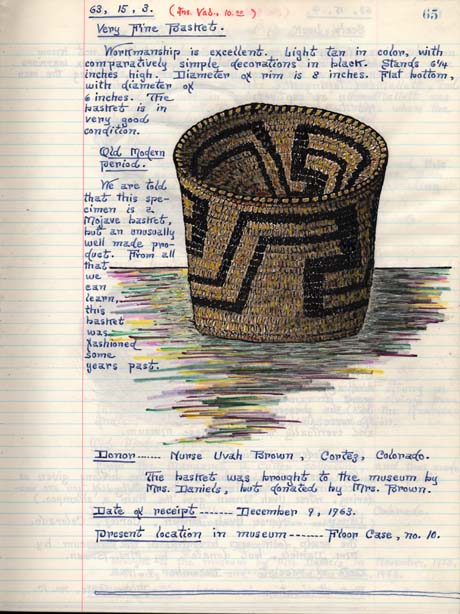 63, 15, 3. (Ins. Val., 10.00)
65
Very Fine Basket.
Workmanship is excellent. Light tan in color, with
comparatively simple decorations in black. Stands 6¼
inches high. Diameter of rim is 8 inches. Flat bottom,
with diameter of
6 inches. The
basket is in
very good
condition.
Old Modern
period.
We are told
that this spe-
cimen is a
Mojave basket,
but an unusually
well made pro-
duct. From all
that
we
can
learn,
this
basket
was
fashioned
some
years past.
Donor ------ Nurse Uvah Brown, Cortez, Colorado.
The basket was brought to the museum by
Mrs. Daniels, but donated by Mrs. Brown.
Date of receipt ------- December 9, 1963.
Present location in museum ------- Floor Case, no. 10.